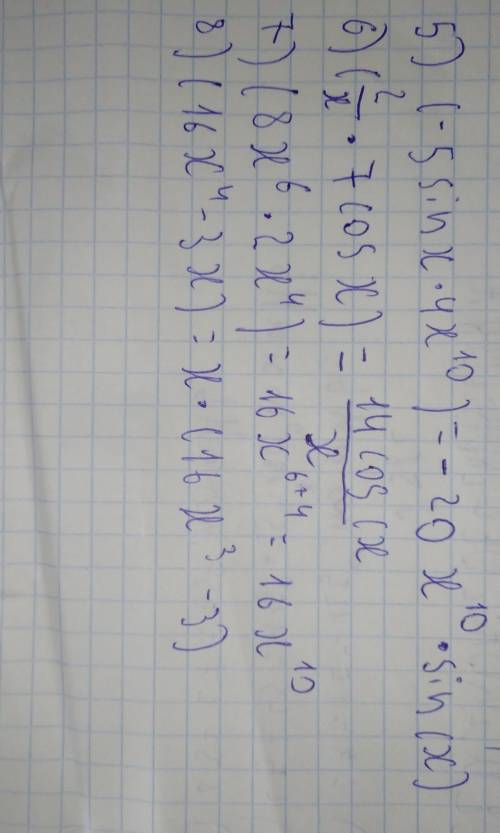 5) (-5 sin x · 4x¹⁰) = -20 x¹⁰ · sin(x)
6) (2/x · 7 cos x) = 14 cos(x / x
7) (8x⁶ · 2x⁴) = 16x⁶⁺⁴ = 16x¹⁰
8) (16x⁴ - 3x) = x · (16x³ - 3)